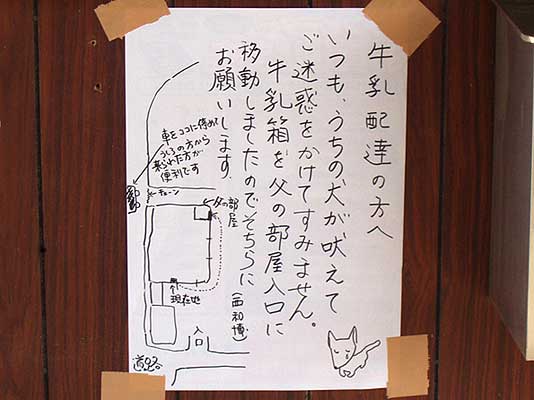 牛乳配達の方へ
いつも、うちの犬が吠えて
ご迷惑をかけてすみません。
牛乳箱を父の部屋入口に
移動しましたのでそちらに
お願いします。
(西和博)
車をココに停めて
うしろの方から
来られた方が
便利です
←チェーン
←父の部屋
現在地
入口